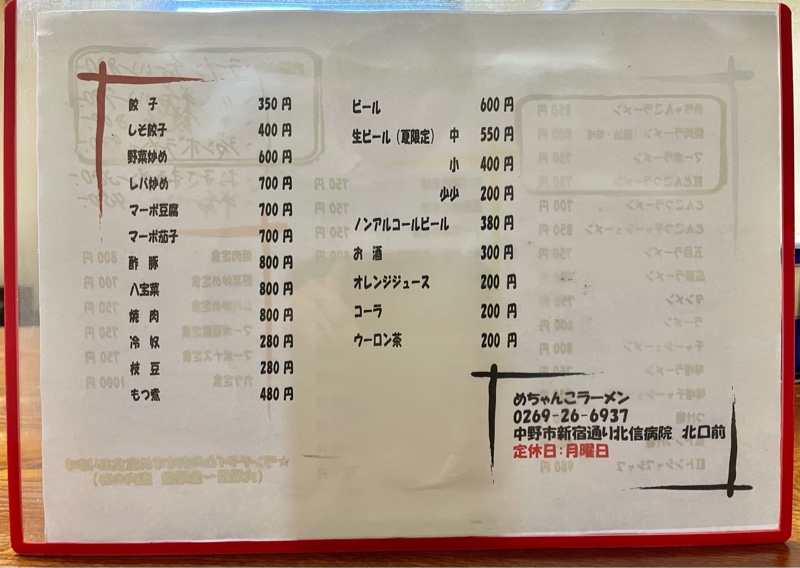 餃子 350円
しそ餃子 400円
野菜炒め 600円
レバ炒め 700円
マーボ豆腐 700円
マーボ茄子 700円
酢豚 800円
八宝菜 800円
焼肉 800円
冷奴 280円
枝豆 280円
もつ煮 480円
ビール 600円
生ビール(夏限定) 中 550円
小 400円
少少 200円
ノンアルコールビール 380円
お酒 300円
オレンジジュース 200円
コーラ 200円
ウーロン茶 200円
めちゃんこラーメン
0269-26-6937
中野市新宿通り北信病院 北口前
定休日:月曜日